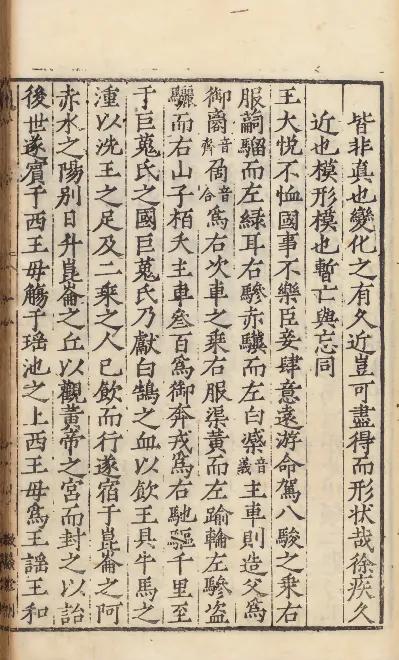 皆非真也變化之有久近豈可盡得而形状哉徐疾久
近也模形模也暫亡與忘同
王大悦不恤國事不樂臣妾肆意遠游命駕八駿之乗右
服𩧢騮而左緑耳右驂赤驥而左白𣚘音義主車則造父爲
御𦥷音齊𠱷音合爲右次車之乗右服渠黄而左踰輪左驂盗
驪而右山子栢夭主車叄百爲御奔戎爲右馳驅千里至
于巨蒐氏之國巨蒐氏乃獻白鵠之血以飲王具牛馬之
湩以洗王之足及二乗之人已飲而行遂宿于崑崙之阿
赤水之陽别日升崑崙之丘以觀黄帝之宫而封之以詒
後世遂賓于西王母觴于瑶池之上西王母爲王謡王和